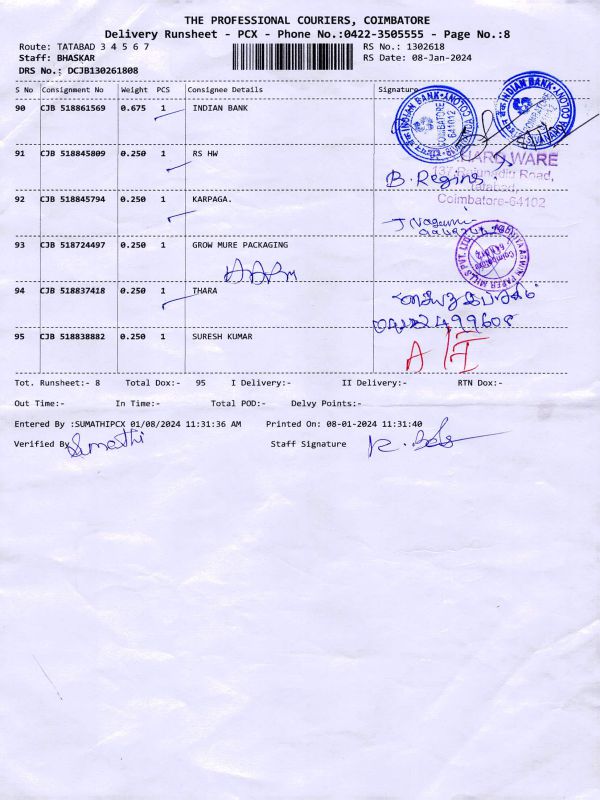 THE PROFESSIONAL COURIERS, COIMBATORE
Delivery Runsheet - PCX - Phone No.:0422-3505555 - Page No.:8
Route: TATABAD 3 4 5 6 7 RS No.: 1302618
Staff: BHASKAR RS Date: 08-Jan-2024
DRS No.: DCJB130261808
S No Consignment No Weight PCS Consignee Details Signature
90 CJB 518861569 0.675 1 INDIAN BANK
INDIAN BANK COIMBATORE 641012
INDIAN BANK COIMBATORE
91 CJB 518845809 0.250 1 RS HW
HARDWARE
Road,
Tatabad,
Coimbatore-64102
B. Regina.
92 CJB 518845794 0.250 1 KARPAGA.
93 CJB 518724497 0.250 1 GROW MURE PACKAGING
PAPER MILLS PVT. LTD. Coimbatore
94 CJB 518837418 0.250 1 THARA
95 CJB 518838882 0.250 1 SURESH KUMAR
Tot. Runsheet:- 8 Total Dox:- 95 I Delivery:- II Delivery:- RTN Dox:-
Out Time:- In Time:- Total POD:- Delvy Points:-
Entered By :SUMATHIPCX 01/08/2024 11:31:36 AM Printed On: 08-01-2024 11:31:40
Verified By Sumathi Staff Signature